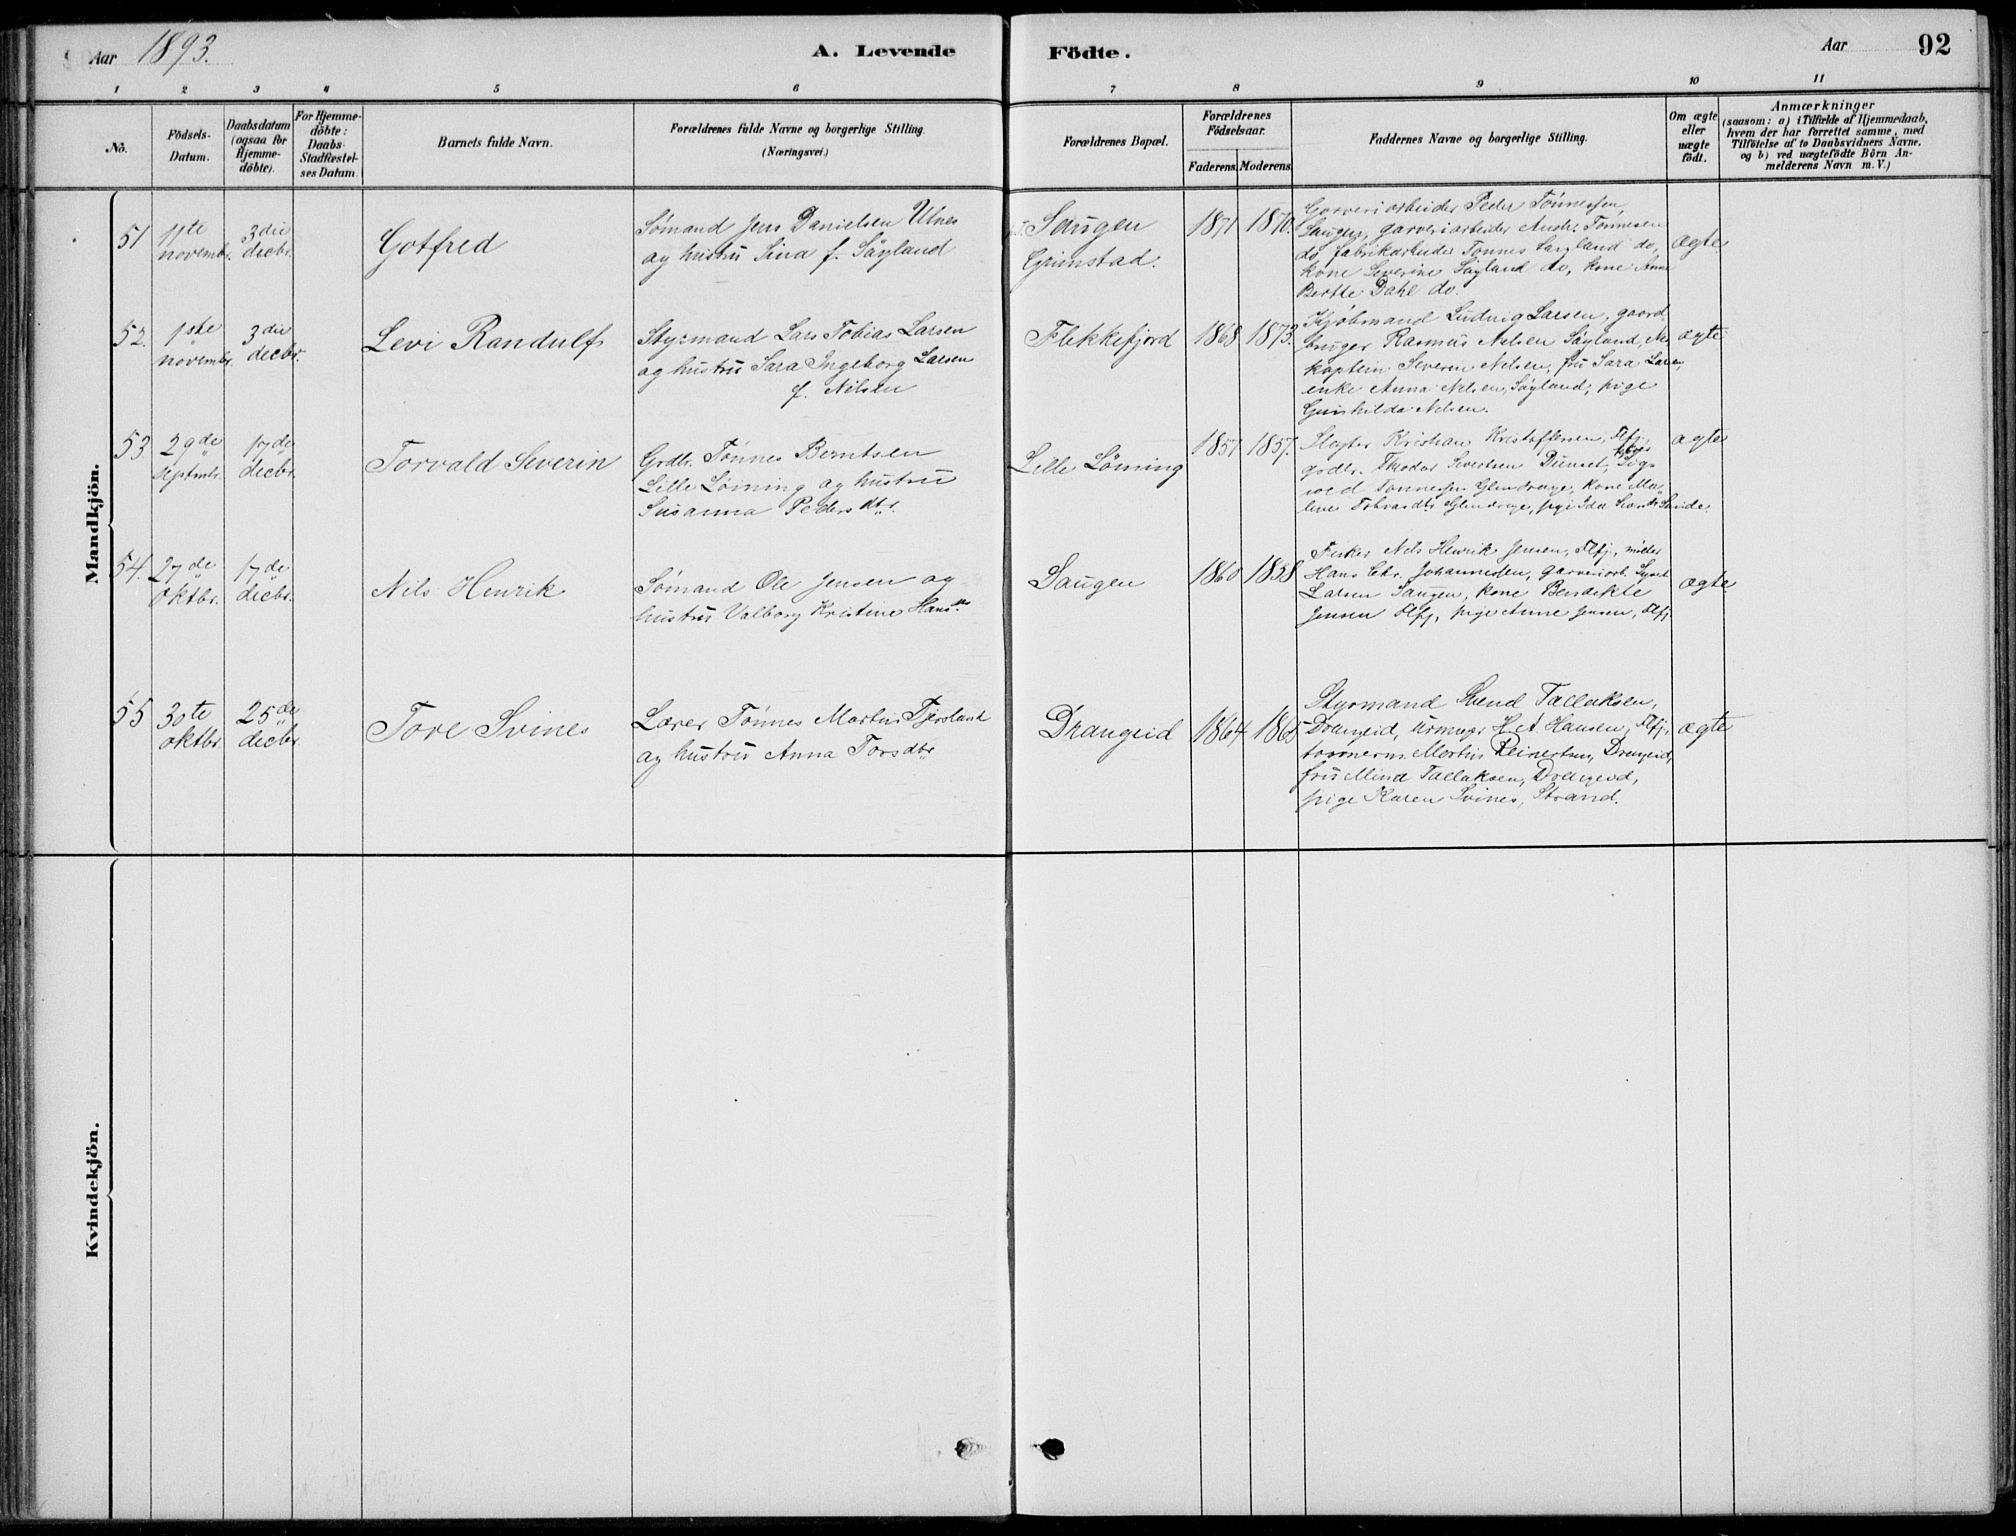 Aar 1893.
A. Levende
Födte.
Aar
92
1 2 3 4 5 6 7 8 9 10 11
No.
Födsels-Datum.
Daabsdatum (ogsaa for Hjemme-döbte).
For Hjemme-döbte: Daabs-Stadfæstel-ses Datum.
Barnets fulde Navn.
Forældrenes fulde Navne og borgerlige Stilling.
(Næringsvei.)
Forældrenes Bopæl.
Forældrenes Födselsaar.
Faderens. Moderens.
Faddernes Navne og borgerlige Stilling.
Om ægte eller uægte födt.
Anmærkninger
(saasom: a) i Tilfælde af Hjemmedaab,
hvem der har forrettet samme, med
Tilföielse af to Daabsvidners Navne,
og b) ved uægtefödte Börn An-
melderens Navn m. V.)
Mandkjön.
51 11te novembr. 3die decbr.
Gotfred
Sømand Jens Danielsen Ulnes
og hustru Sina f. Søyland
Saugen
Grimstad.
1871 1870.
Garveriarbeider Peder Tønnessen,
Saugen, garveriarbeider Andr. Tønnesen
do, fabrikarbeider Tønnes Søyland do,
kone Severine Søyland do, kone Anne
Berthe Dahl do.
ægte
52. 1ste novembr. 3die decbr.
Levi Randulf
Styrmand Lars Tobias Larsen
og hustru Sara Ingeborg Larsen
f. Nilsen
Flekkefjord
1868 1873.
Kjøbmand Ludvig Larsen, gaard
bruger Rasmus Nilsen Søyland,
kaptein Severin Nilsen, fru Sara Larsen,
enke Anna Nilsen, Søyland, pige
Gunhilda Nilsen.
ægte
53 29de septmbr. 17de decbr.
Torvald Severin
Grdbr. Tønnes Berntsen
Lille Løining og hustru
Susanna Pedersdtr.
Lille Løining
1857 1857.
Slagter Kristian Kristoffersen, Flfj.,
grdbr. Theodor Sivertsen Dunset, Sig-
vald Tønnessen Glendrange, kone Ma-
line Glendrange, pige Ida Sande.
ægte
54. 27de oktbr. 17de decbr.
Nils Henrik
Sømand Ole Jensen og
hustru Valborg Kristine Hansdtr.
Saugen
1860 1858
Fisker Nils Henrik Jensen, Flfj.,
Hans Chr. Johannessen, garveriarb.
Larsen Saugen, kone Bendikte
Jensen Flfj, pige Anne Jensen, Flfj.
ægte
55 30te oktbr. 25de decbr
Tore Svines
Lærer Tønnes Martin Fjersland
og hustru Anna Torsdtr
Drangeid
1864 1865
Styrmand Svend Tallaksen,
Drangeid, urmager H. A Hansen, Flfj,
tømmerm. Martin Reinertsen, Drangeid,
fru Mina Tallaksen, Drangeid,
pige Karen Svines, Strand.
ægte
Kvindekjön.